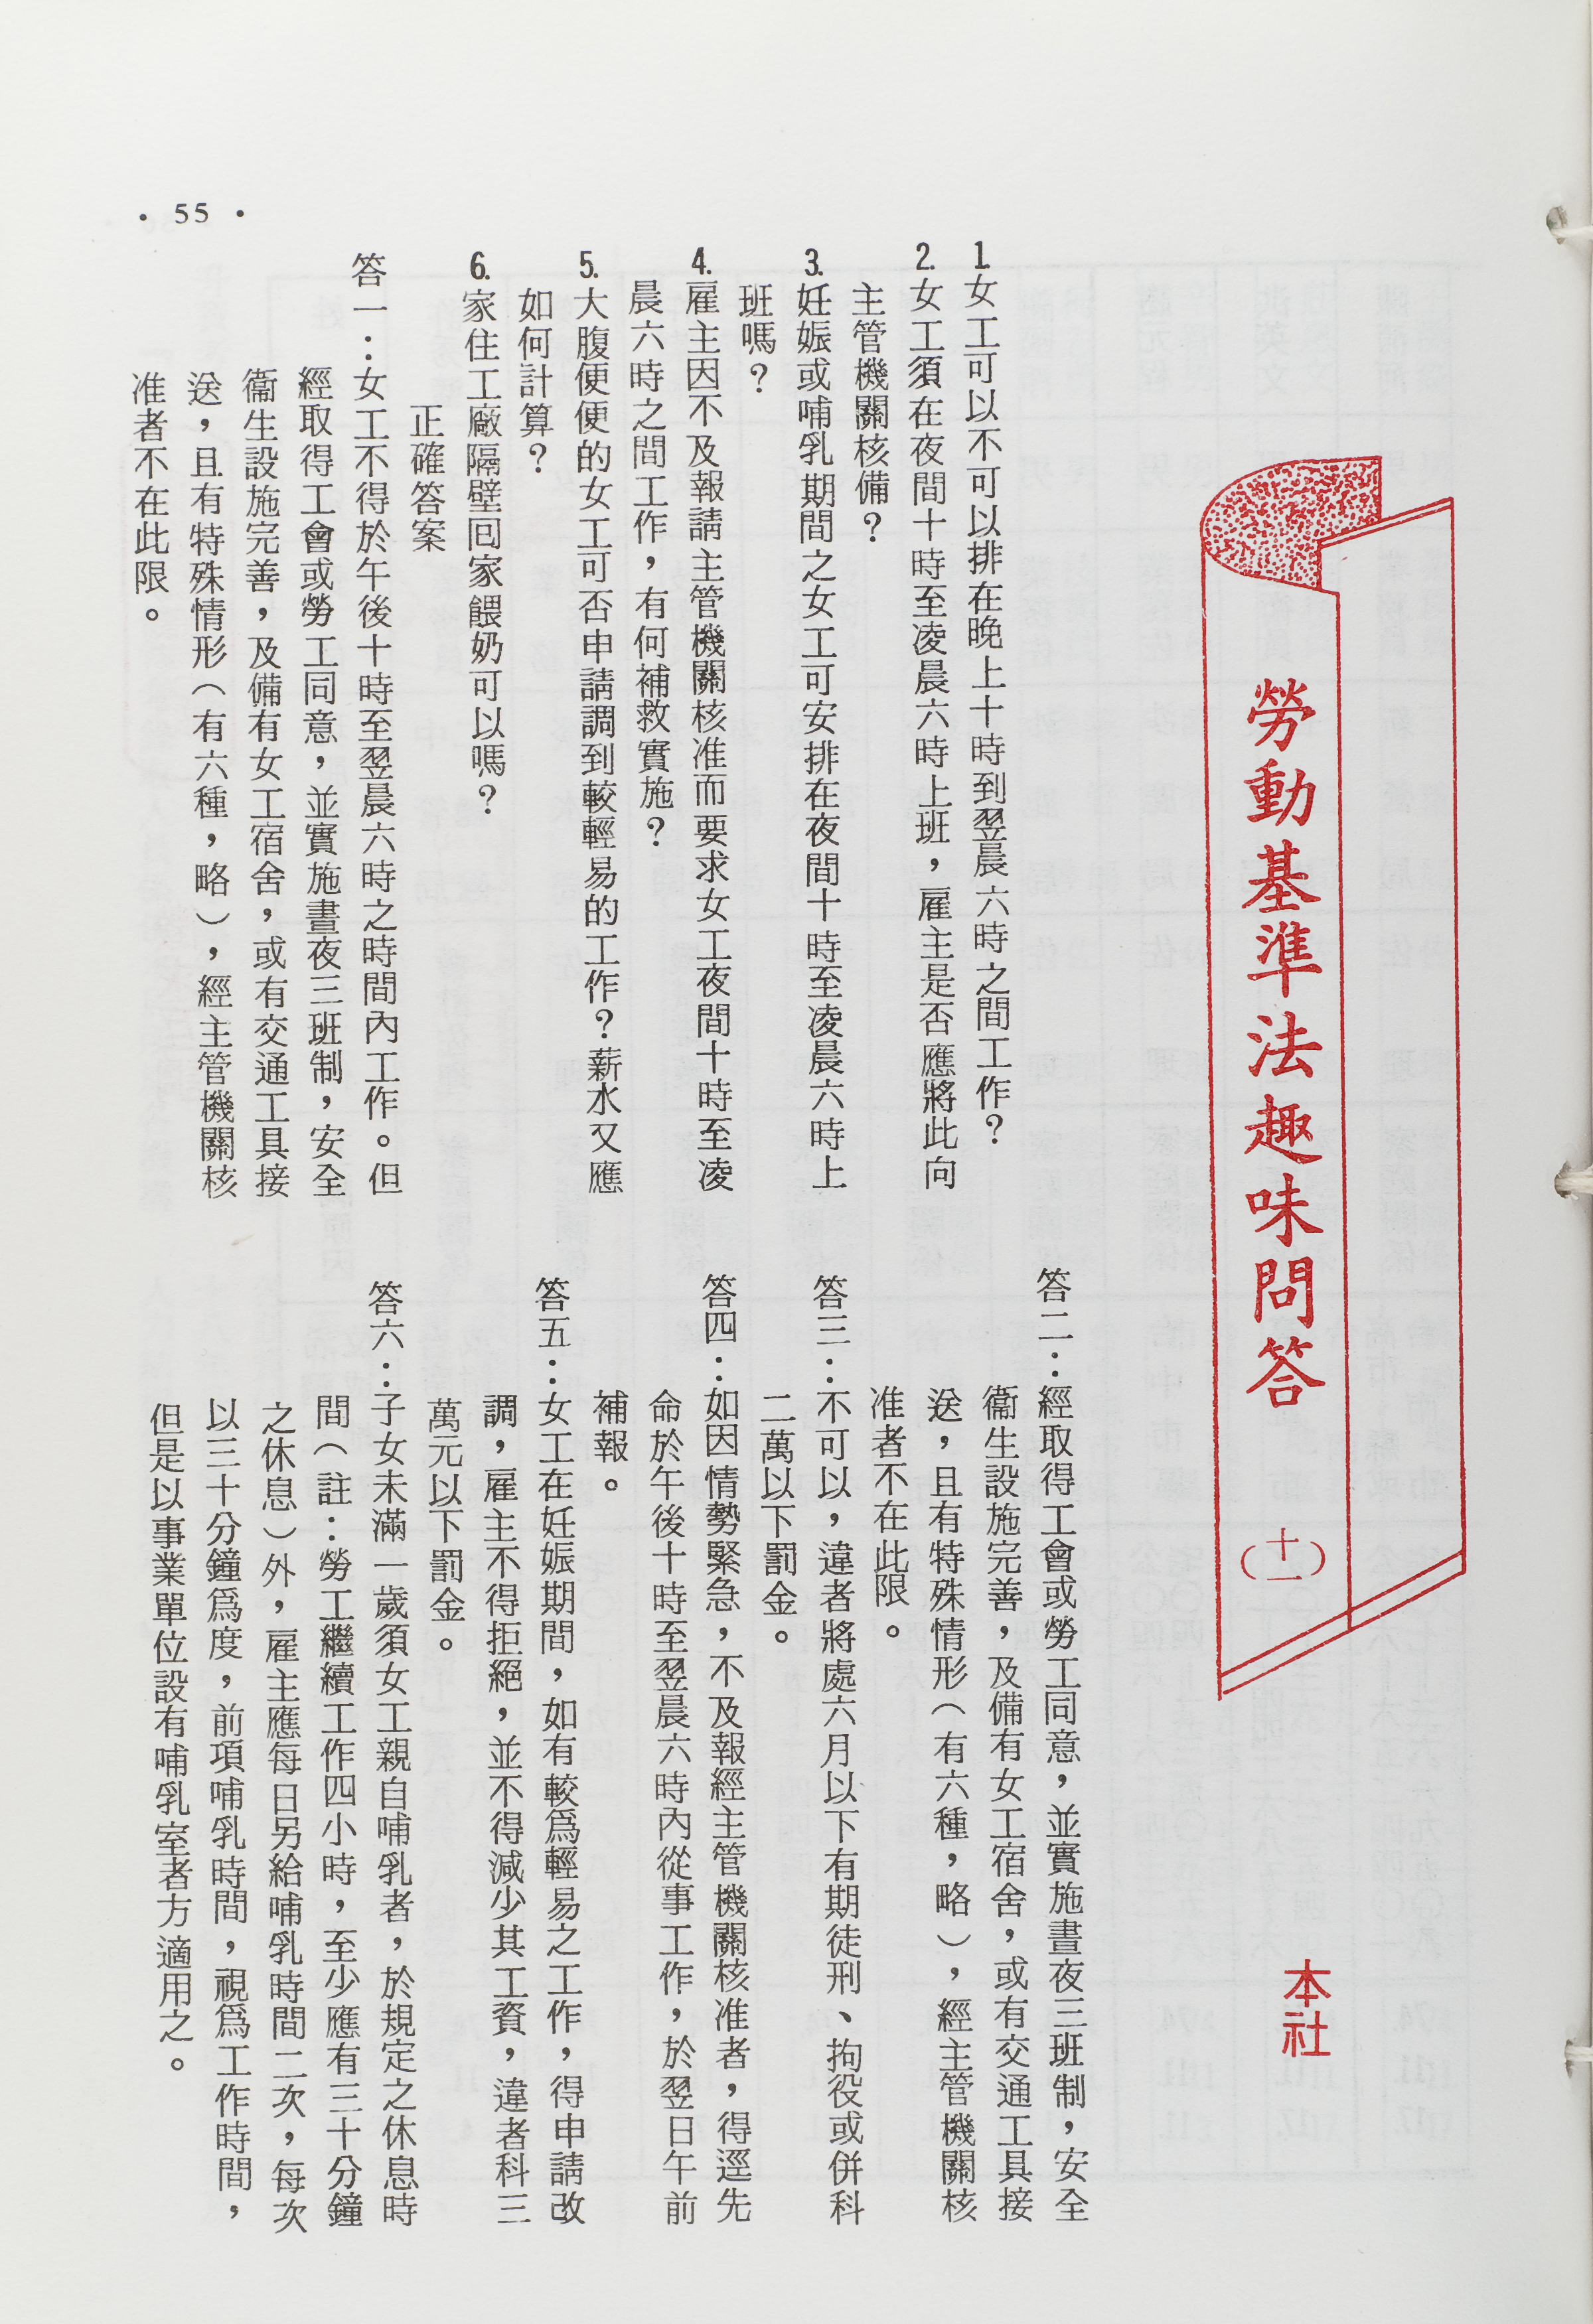 勞動基準法趣味問答（十一）
本社
1.女工可以不可以排在晚上十時到翌晨六時之間工作？
2.女工須在夜間十時至凌晨六時上班，雇主是否應將此向
主管機關核備？
3.妊娠或哺乳期間之女工可安排在夜間十時至凌晨六時上
班嗎？
4.雇主因不及報請主管機關核准而要求女工夜間十時至凌
晨六時之間工作，有何補救實施？
5.大腹便便的女工可否申請調到較輕易的工作？薪水又應
如何計算？
6.家住工廠隔壁囘家餵奶可以嗎？
正確答案
答一：女工不得於午後十時至翌晨六時之時間內工作。但
經取得工會或勞工同意，並實施晝夜三班制，安全
衞生設施完善，及備有女工宿舍，或有交通工具接
送，且有特殊情形（有六種，略），經主管機關核
准者不在此限。
答二：經取得工會或勞工同意，並實施晝夜三班制，安全
衞生設施完善，及備有女工宿舍，或有交通工具接
送，且有特殊情形（有六種，略），經主管機關核
准者不在此限。
答三：不可以，違者將處六月以下有期徒刑、拘役或併科
二萬以下罰金。
答四：如因情勢緊急，不及報經主管機關核准者，得逕先
命於午後十時至翌晨六時內從事工作，於翌日午前
補報。
答五：女工在妊娠期間，如有較爲輕易之工作，得申請改
調，雇主不得拒絕，並不得減少其工資，違者科三
萬元以下罰金。
答六：子女未滿一歲須女工親自哺乳者，於規定之休息時
間（註：勞工繼續工作四小時，至少應有三十分鐘
之休息）外，雇主應每日另給哺乳時間二次，每次
以三十分鐘爲度，前項哺乳時間，視爲工作時間，
但是以事業單位設有哺乳室者方適用之。
• 55 •